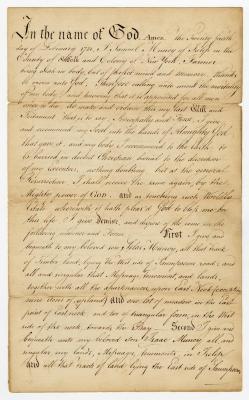 In the name of God Amen. the Twenty fourth
day of February 1774, I Samuel Muncy of Islip in the
County of Suffolk and Colony of New York, Farmer
being Sick in body, but of perfect mind and memory, thanks
be given unto God; Therefore calling unto mind the mortality
of my body, and knowing that it is appointed for all men
once to die, do make and ordain this my last Will and
Testament, that is to say, Principally and First, I give
and recommend my Soul into the hands of Almighty God
that gave it, and my body I recommend to the earth to
be buried in decent Christian burial to the discretion
of my executors, nothing doubting but at the general
Resurrection I shall receive the same again, by the
Mighty power of God. And as touching such Worldly
Estate wherewith it hath pleas'd God to bless me in
this life I give Demise, and dispose of the same in the
following manner and Form.
First I give and
bequeath to my beloved son Muncy, all that
of timber land, lying the West side of Sampawams road; and
all and singular that Messuage tenement, and lands,
together with all the apurtenances upon East Neck
and one lot of meadow on the East
point of East neck and the in the West
side of the neck towards the Bay. Second I give and
bequeath unto my beloved son Isaac Muncy all and
singular my lands, Messuage, tenements, in Islip
and all that tract of land lying the East side of Sampawams